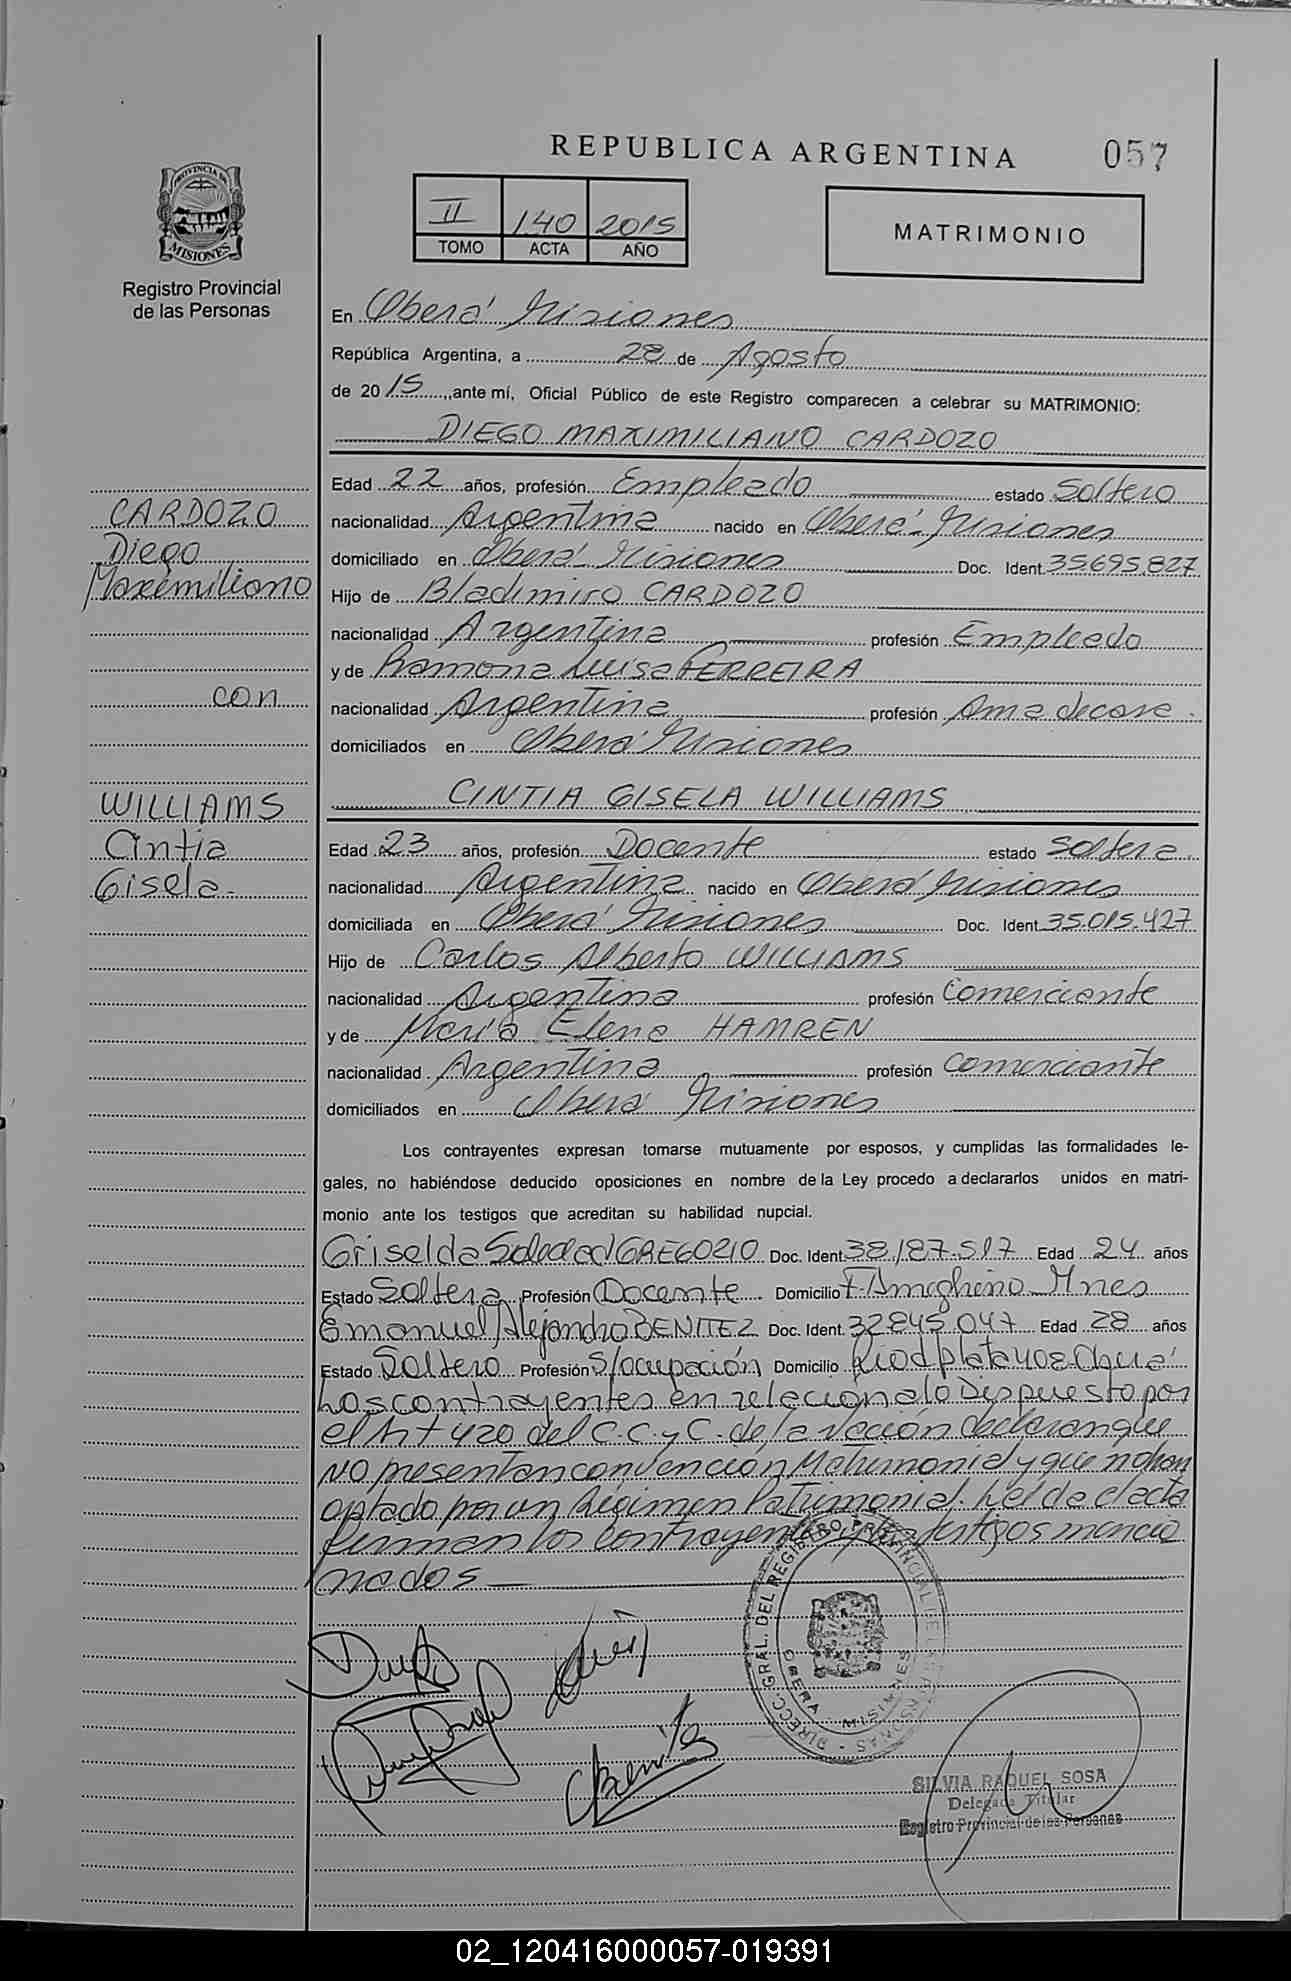 REPUBLICA ARGENTINA 057
PROVINCIA DE
MISIONES
Registro Provincial
de las Personas
II 140 2015
TOMO ACTA AÑO
MATRIMONIO
En Oberá Misiones
República Argentina, a 28 de Agosto
de 2015, ante mí, Oficial Público de este Registro comparecen a celebrar su MATRIMONIO:
DIEGO MAXIMILIANO CARDOZO
CARDOZO
Diego
Maximiliano
con
WILLIAMS
Cintia
Gisela.
Edad 22 años, profesión Empleado estado Soltero
nacionalidad Argentina nacido en Oberá - Misiones
domiciliado en Oberá - Misiones Doc. Ident. 35.695.827
Hijo de Bladimiro CARDOZO
nacionalidad Argentina profesión Empleado
y de Ramona Luisa FERREIRA
nacionalidad Argentina profesión Ama de casa.
domiciliados en Oberá Misiones
CINTIA GISELA WILLIAMS
Edad 23 años, profesión Docente estado Soltera
nacionalidad Argentina nacido en Oberá Misiones
domiciliada en Oberá Misiones Doc. Ident. 35.015.427
Hijo de Carlos Alberto WILLIAMS
nacionalidad Argentina profesión Comerciante
y de María Elena HAMREN
nacionalidad Argentina profesión Comerciante
domiciliados en Oberá Misiones
Los contrayentes expresan tomarse mutuamente por esposos, y cumplidas las formalidades le-
gales, no habiéndose deducido oposiciones en nombre de la Ley procedo a declararlos unidos en matri-
monio ante los testigos que acreditan su habilidad nupcial.
Griselda Soledad GREGORIO Doc. Ident. 38.187.517 Edad 24 años
Estado Soltera Profesión Docente. Domicilio F. Ameghino Mnes
Emanuel Alejandro BENITEZ Doc. Ident. 32845.047 Edad 28 años
Estado Soltero Profesión S/ocupación Domicilio Rio d plata 408
Los contrayentes en relacion a lo Dispuesto por
el Art 420 del C.C. y C. de la Nación declaran que
NO presentan convención Matrimonial y que no han
optado por un Régimen Patrimonial. Leída el acta
firman los contrayentes y los testigos mencio
nados
DIRECC. GRAL. DEL REGISTRO PROVINCIAL DE LAS PERSONAS
OBERA MISIONES
Benitez
SILVIA RAQUEL SOSA
Delegada Titular
Registro Provincial de las Personas
02_120416000057-019391